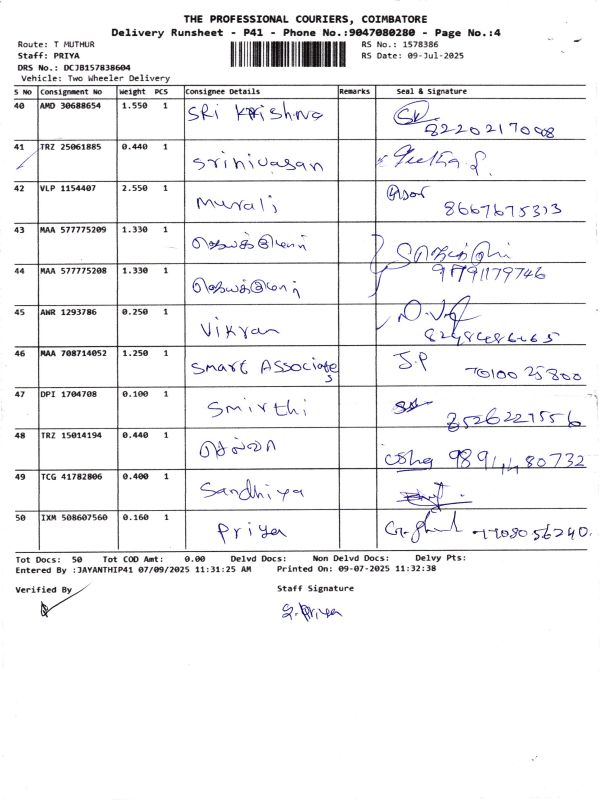 THE PROFESSIONAL COURIERS, COIMBATORE
Delivery Runsheet - P41 - Phone No.:9047080280 - Page No.:4
Route: T MUTHUR RS No.: 1578386
Staff: PRIYA RS Date: 09-Jul-2025
DRS No.: DCJB157838604
Vehicle: Two Wheeler Delivery
S No Consignment No Weight PCS Consignee Details Remarks Seal & Signature
40 AMD 30688654 1.550 1 SRi Krishna
8220217008
41 TRZ 25061885 0.440 1 Srinivasan Geetha S.
42 VLP 1154407 2.550 1 Murali
8667675313
43 MAA 577775209 1.330 1
44 MAA 577775208 1.330 1 9791179746
45 AWR 1293786 0.250 1 Vikran
46 MAA 708714052 1.250 1 Smart Associates J.P 7010025800
47 DPI 1704708 0.100 1 Smirthi
8526227556
48 TRZ 15014194 0.440 1 செல்வா
49 TCG 41782806 0.400 1 Sandhiya
50 IXM 508607560 0.160 1 Priya 7708056240.
Tot Docs: 50 Tot COD Amt: 0.00 Delvd Docs: Non Delvd Docs: Delvy Pts:
Entered By :JAYANTHIP41 07/09/2025 11:31:25 AM Printed On: 09-07-2025 11:32:38
Verified By Staff Signature
S. Priya